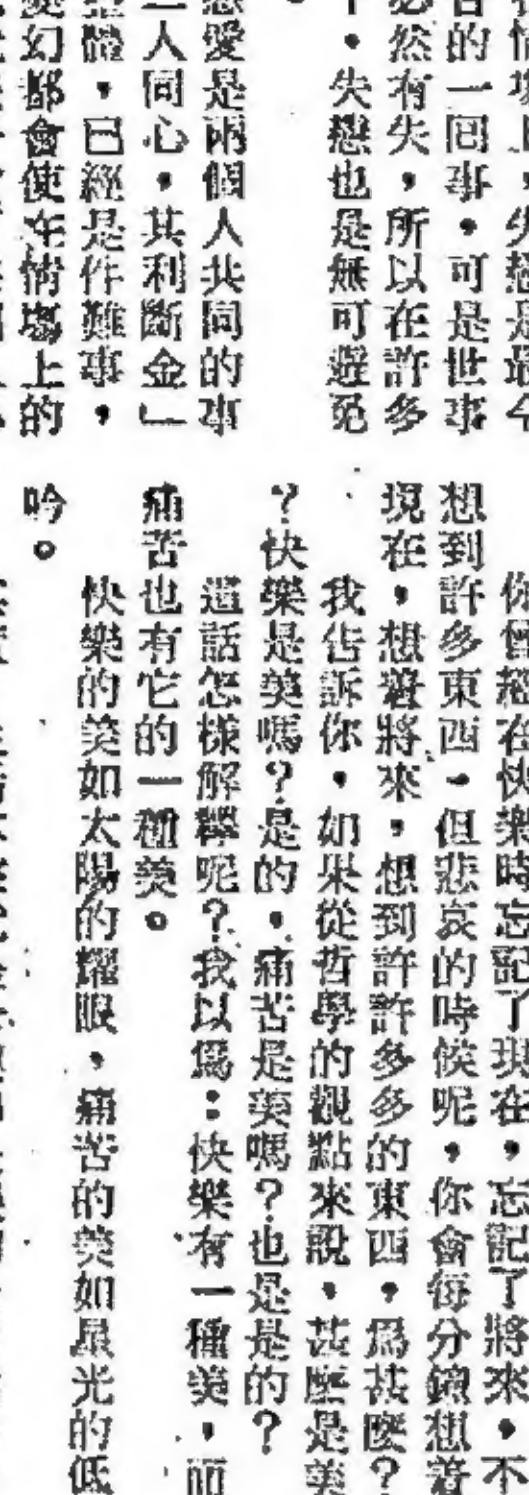 情場上,失戀是最令
的一囘事。可是世事
必然有失,所以在許多
。失戀也是無可避免
戀愛是兩個人共同的事
二人同心,其利斷金」
體,已經是件難事,
幻都會使在情場上的
你會在快樂時忘記了現在,忘記了將來,不
想到許多東西。但悲哀的時候呢,你會每分鐘想着
現在,想着將來,想到許許多多的東西,爲甚麼?
我告訴你,如果從哲學的觀點來說,甚麼是美
?快樂是美嗎?是的。痛苦是美嗎?也是是的?
這話怎樣解釋呢?我以爲:快樂有一種美,而
痛苦也有它的一種美。
快樂的美如太陽的耀眼,痛苦的美如星光的低
吟。